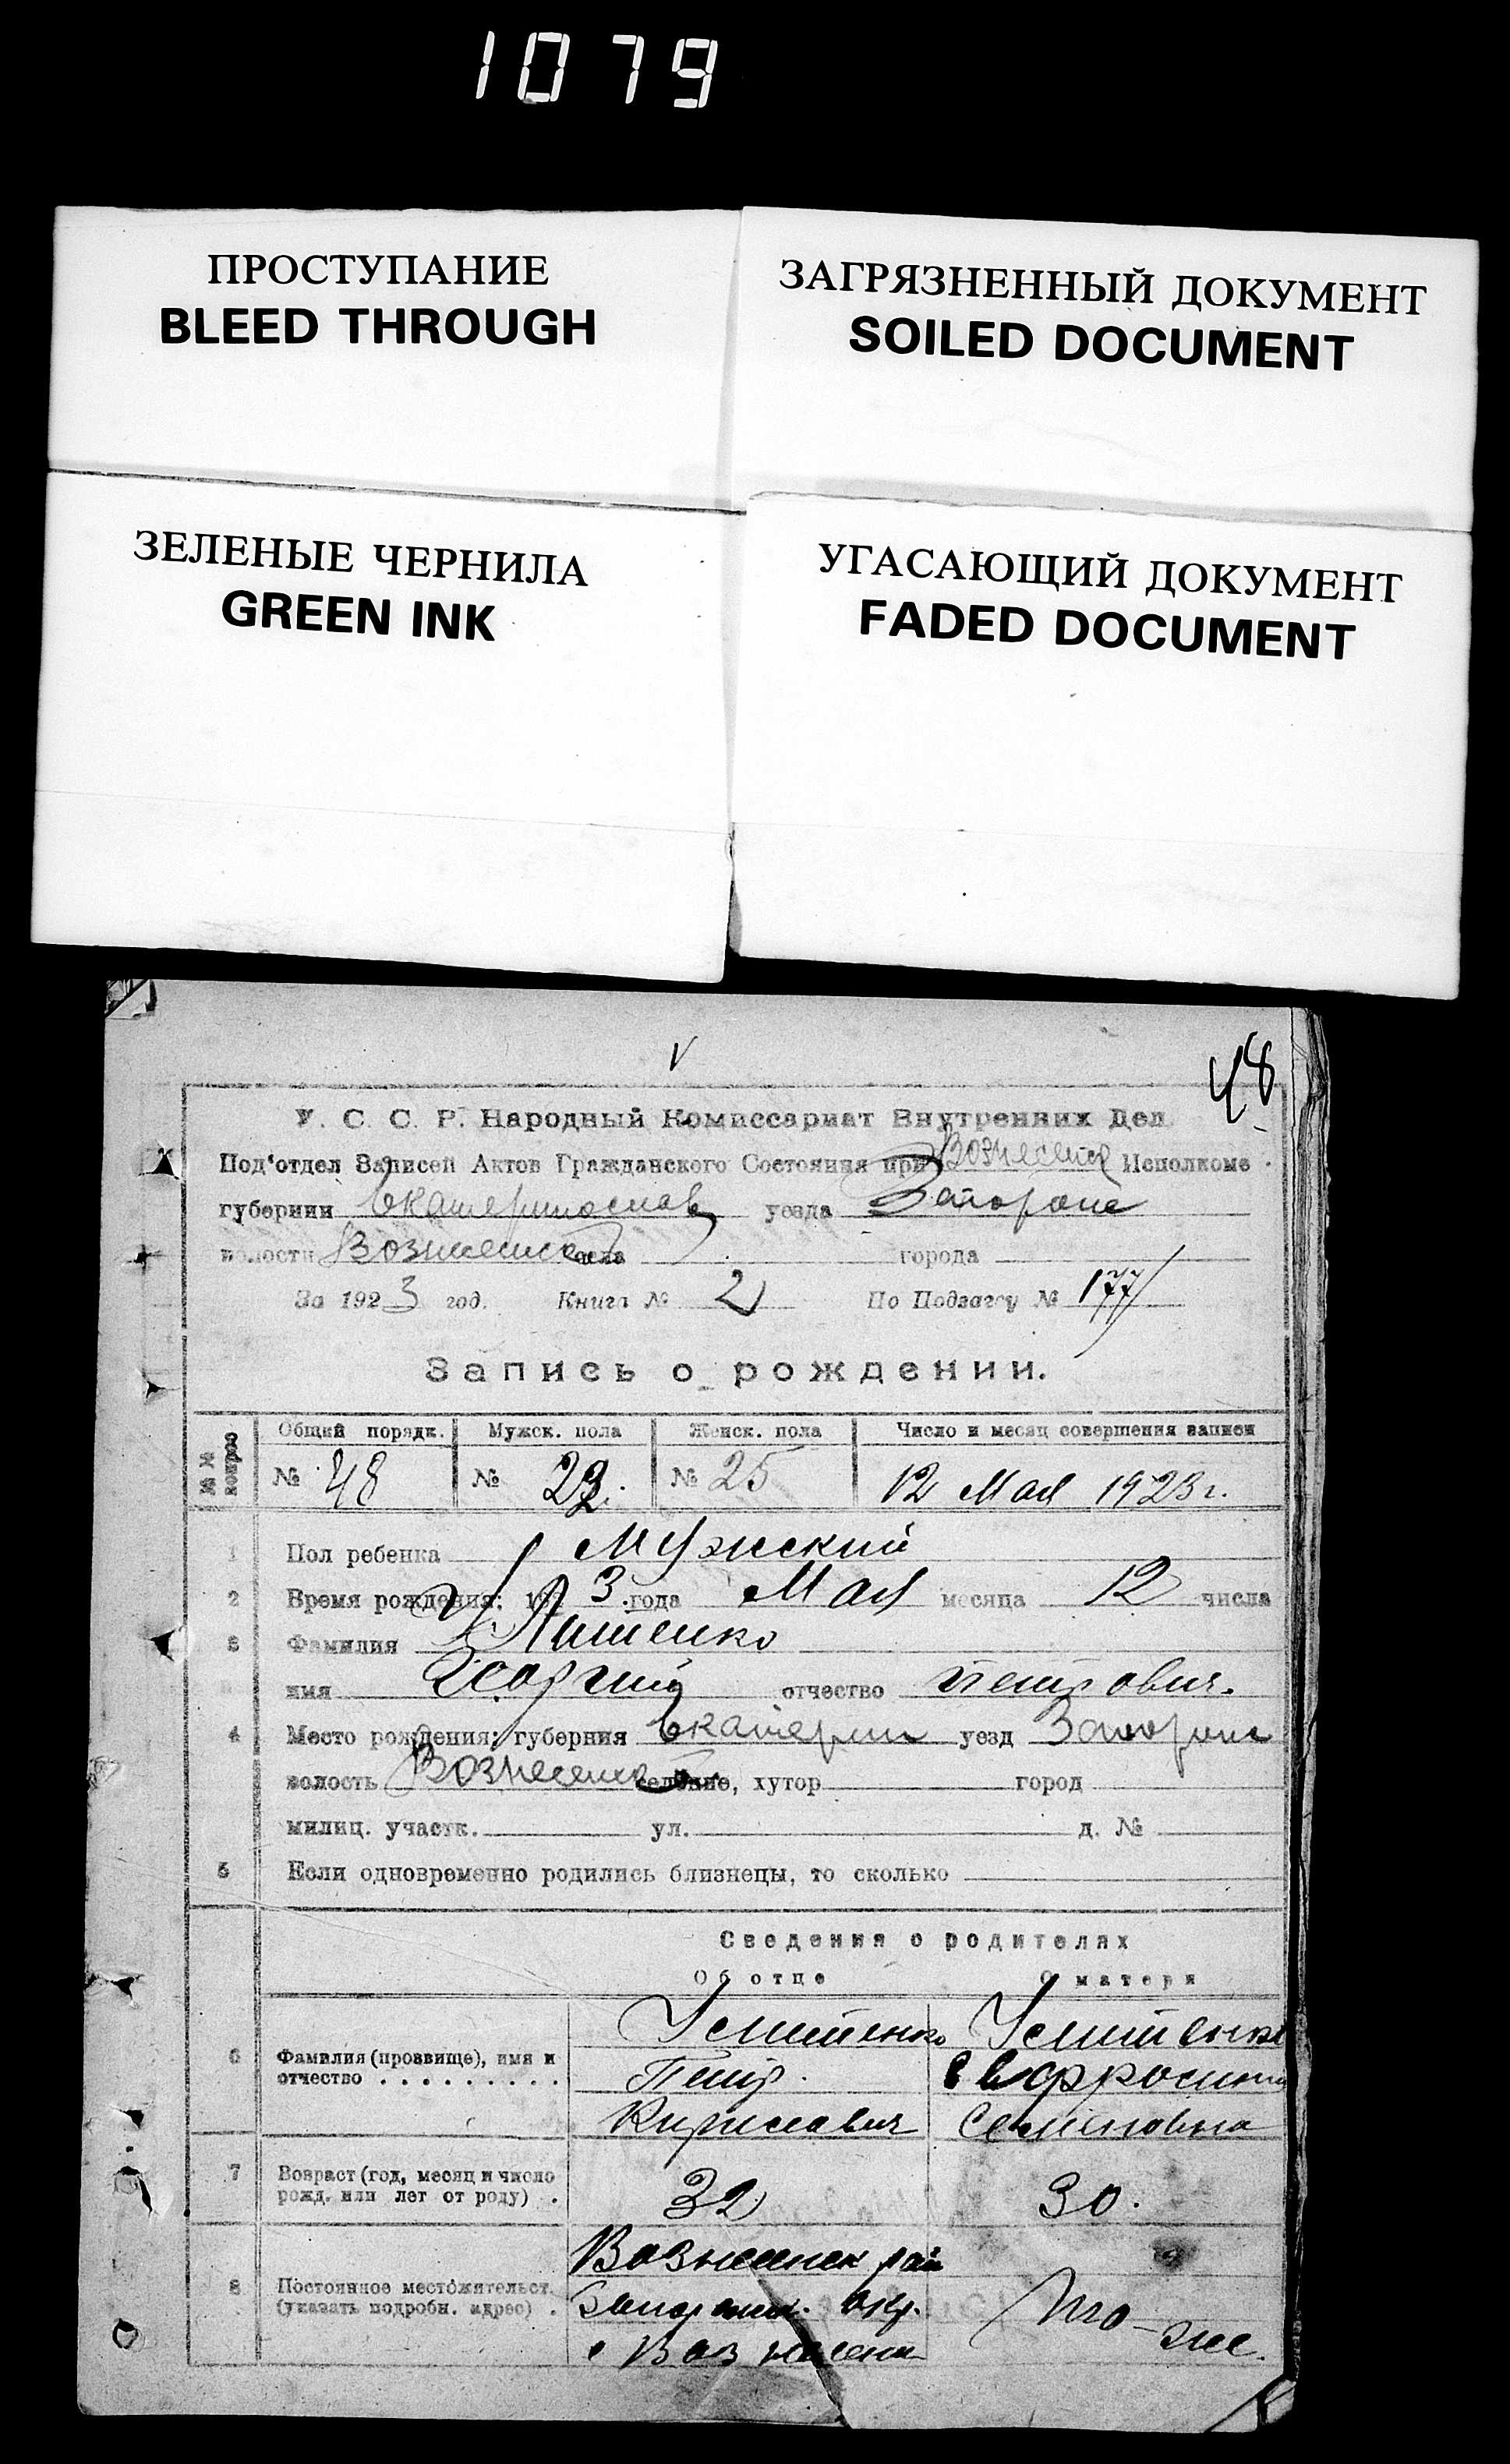 1079
ПРОСТУПАНИЕ
BLEED THROUGH
ЗАГРЯЗНЕННЫЙ ДОКУМЕНТ
SOILED DOCUMENT
ЗЕЛЕНЫЕ ЧЕРНИЛА
GREEN INK
УГАСАЮЩИЙ ДОКУМЕНТ
FADED DOCUMENT
V
48
У. С. С. Р. Народный Комиссариат Внутренних Дел.
Под'отдел Записей Актов Гражданского Состояния при Вознесенск Исполкоме
губернии Екатеринослав уезда Запорож
волости Вознесенской села города
За 1923 год. Книга № 2 По Подзагсу № 177
Запись о рождении.
№ № вопрос Общий порядк. Мужск. пола Женск. пола Число и месяц совершения записи
№ 48 № 23. № 25 12 Мая 1923 г.
1 Пол ребенка Мужский
2 Время рождения: 192 3 года Мая месяца 12 числа
3 Фамилия
имя Георгий отчество Петрович.
4 Место рождения: губерния Екатерин уезд Запорож
волость Вознесенская селение, хутор город
милиц. участк. ул. д. №
5 Если одновременно родились близнецы, то сколько
Сведения о родителях
Об отце О матери
6 Фамилия (прозвище), имя и отчество . . . . . . . . .
Петр
Кириллович
Евфросиния
Семеновна
7 Возраст (год, месяц и число рожд. или лет от роду) . 32 30.
8 Постоянное местожительст. (указать подробн. адрес) .
Вознесенск рай
Запорож. окр.
с Вознесен
то-же.